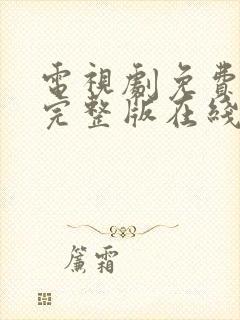 電視劇免費
完整版在綫
簾霜